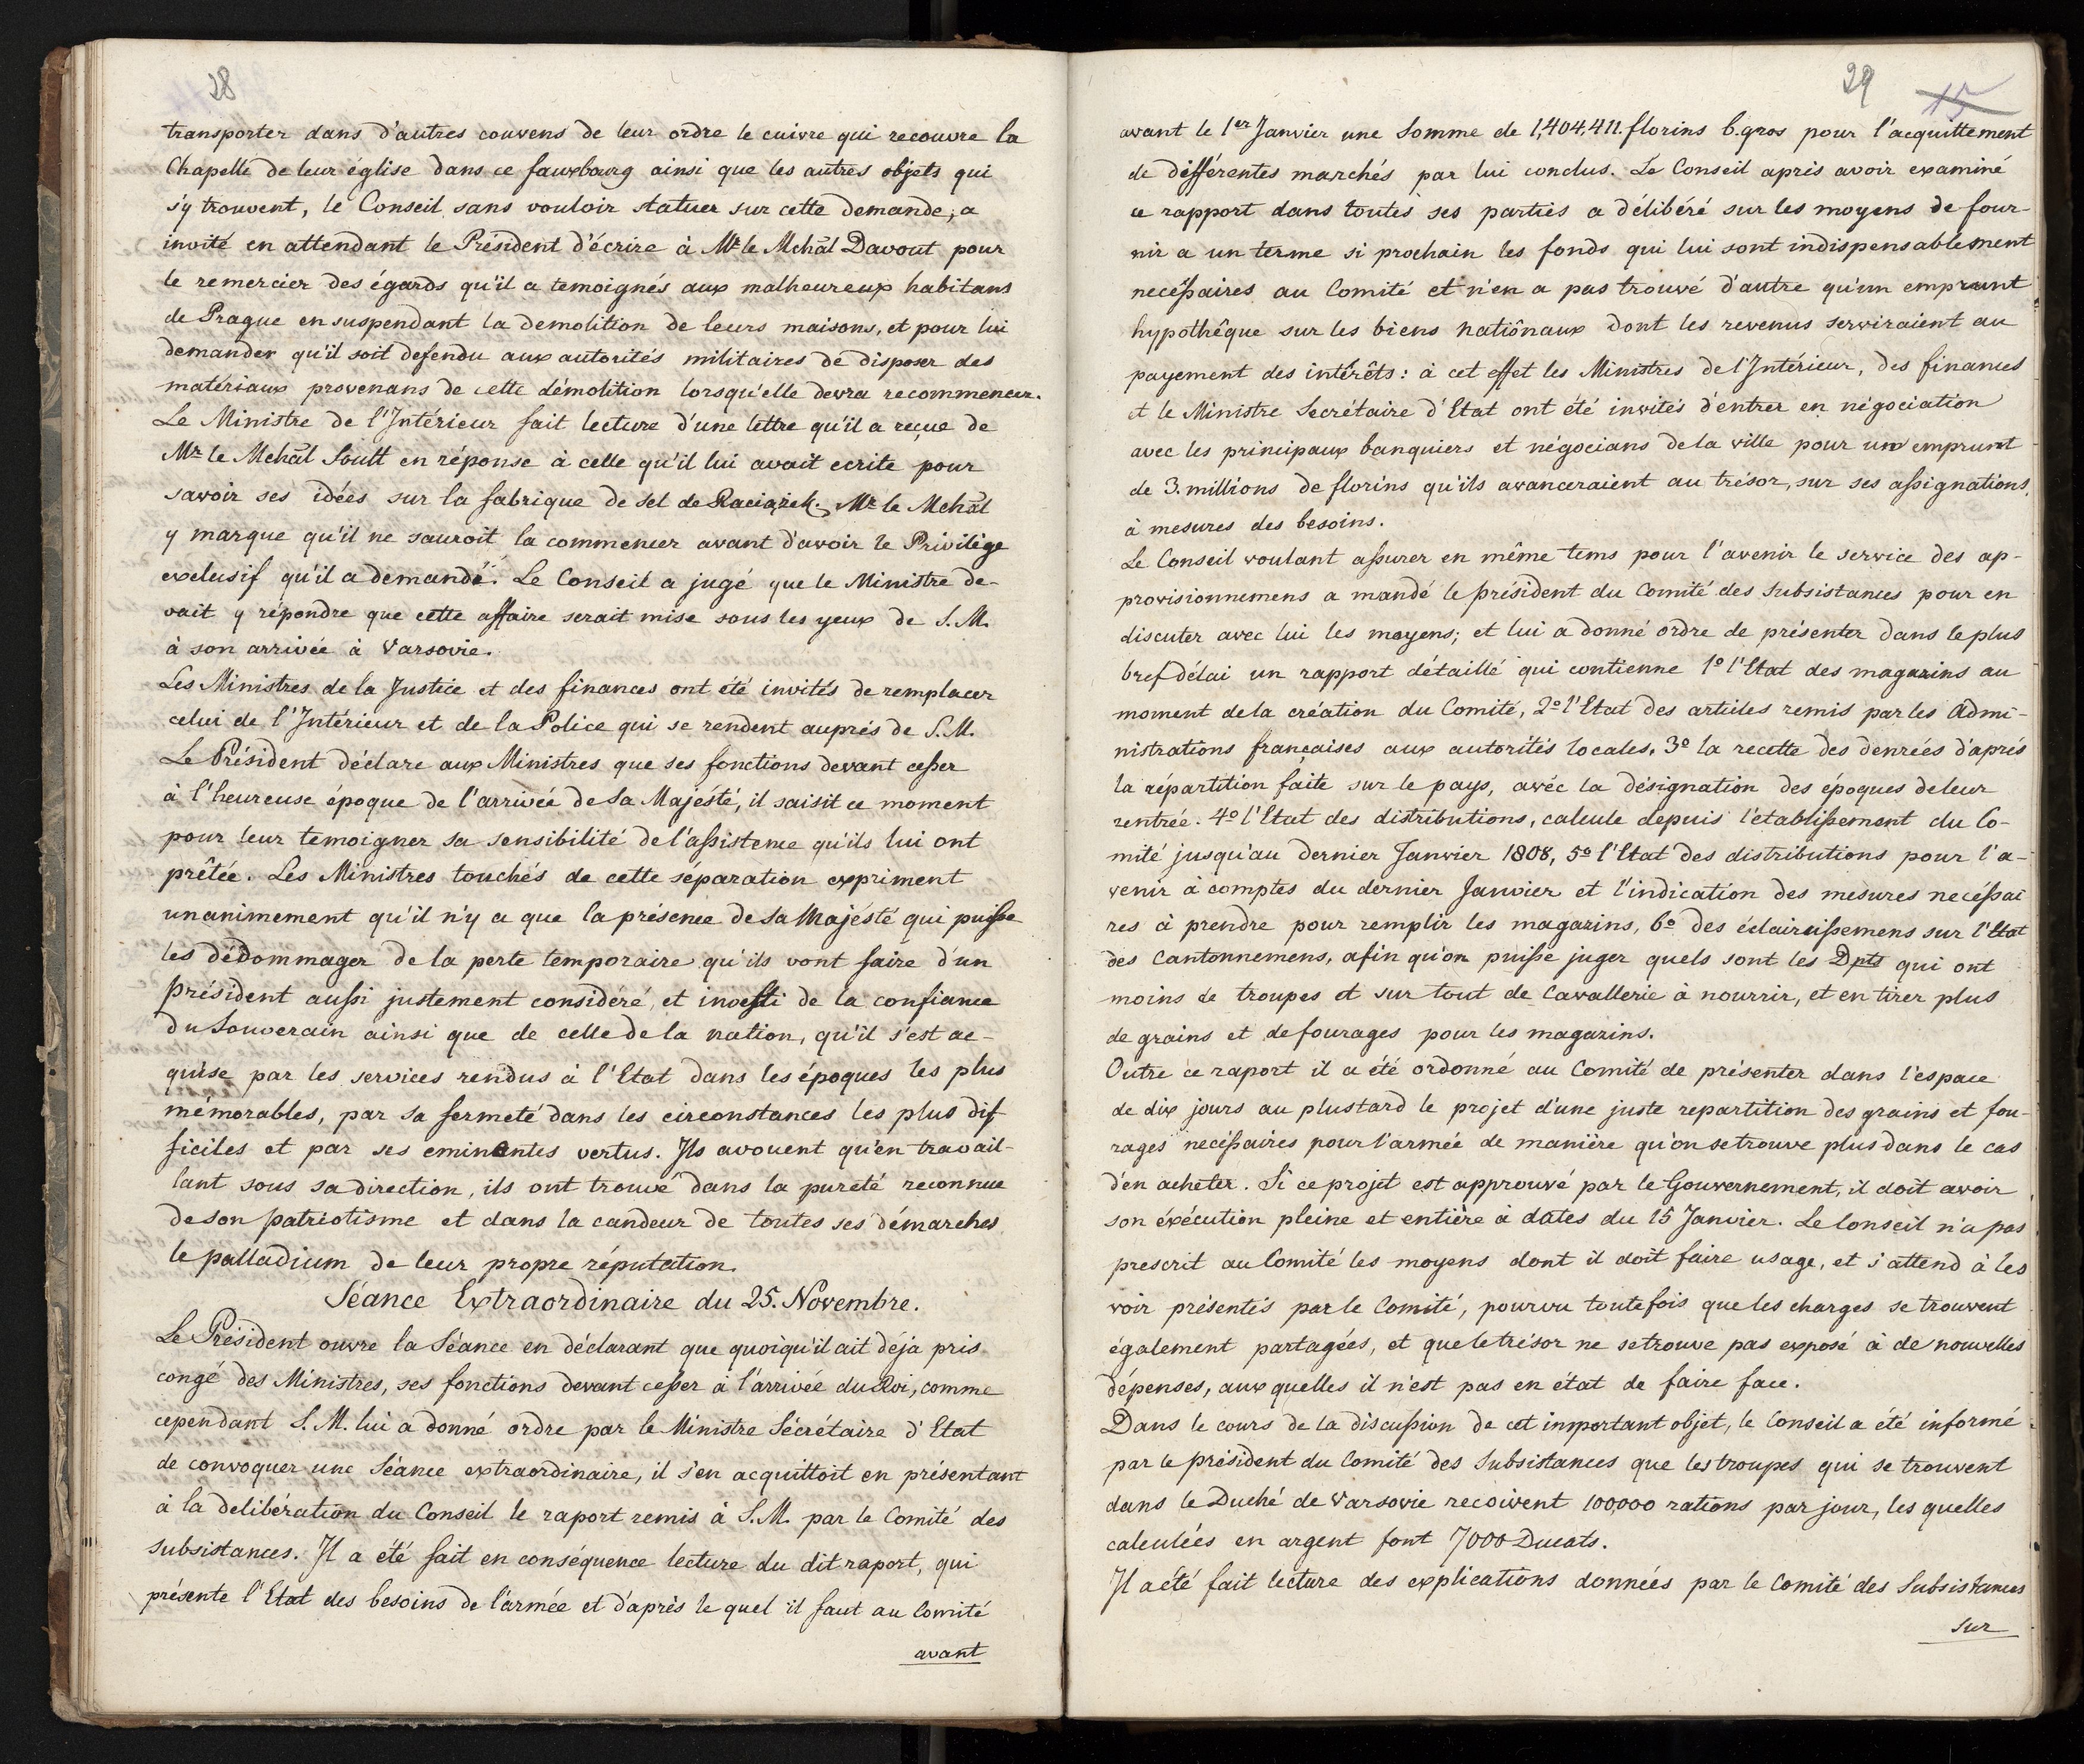 28
transporter dans d'autres couvens de leur ordre le cuivre qui recouvre la
Chapelle de leur église dans ce fauxbourg ainsi que les autres objets qui
s'y trouvent, le Conseil sans vouloir statuer sur cette demande, a
invité en attendant le Président d'écrire à Mr. le Mchāl Davout pour
le remercier des égards qu'il a temoignés aux malheureux habitans
de Prague en suspendant la demolition de leurs maisons, et pour lui
demander qu'il soit defendu aux autorités militaires de disposer des
matériaux provenans de cette démolition lorsqu'elle devra recommencer.
Le Ministre de l'Intérieur fait lecture d'une lettre qu'il a reçue de
Mr. le Mchāl Soult en réponse à celle qu'il lui avait ecrite pour
savoir ses idées sur la fabrique de sel de Raciążek. Mr. le Mchāl
y marque qu'il ne sauroit la commencer avant d'avoir le Privilège
exclusif qu'il a demandé. Le Conseil a jugé que le Ministre de-
vait y répondre que cette affaire serait mise sous les yeux de S. M.
à son arrivée à Varsovie.
Les Ministres de la Justice et des finances ont été invités de remplacer
celui de l'Intérieur et de la Police qui se rendent auprés de S. M.
Le Président déclare aux Ministres que ses fonctions devant cesser
à l'heureuse époque de l'arrivée de Sa Majésté, il saisit ce moment
pour leur temoigner sa sensibilité de l'assistence qu'ils lui ont
prêtée. Les Ministres touchés de cette séparation expriment
unanimement qu'il n'y a que la présence de Sa Majésté qui puisse
les dédommager de la perte temporaire qu'ils vont faire d'un
Président aussi justement considéré, et investi de la confiance
du Souverain ainsi que de celle de la nation, qu'il s'est ac-
quise par les services rendus à l'Etat dans les époques les plus
mémorables, par sa fermeté dans les circonstances les plus dif
ficiles et par ses eminentes vertus. Ils avouent qu'en travail-
lant sous sa direction, ils ont trouvé dans la pureté reconnue
de son patriotisme et dans la candeur de toutes ses démarches
le palladium de leur propre réputation.
Séance Extraordinaire du 25. Novembre.
Le Président ouvre la Séance en déclarant que quoiqu'il ait déja pris
congé des Ministres, ses fonctions devant cesser à l'arrivée du Roi, comme
cependant S. M. lui a donné ordre par le Ministre Sécrétaire d'Etat
de convoquer une Séance extraordinaire, il s'en acquittoit en présentant
à la delibération du Conseil le raport remis à S. M. par le Comité des
subsistances. Il a été fait en conséquence lecture du dit raport, qui
présente l'Etat des besoins de l'armée et d'aprés le quel il faut au Comité
avant
29
15
avant le 1er Janvier une Somme de 1,404,411. florins 6. gros pour l'acquittement
de différentes marchés par lui conclus. Le Conseil aprés avoir examiné
ce rapport dans toutes ses parties a délibéré sur les moyens de four-
nir a un terme si prochain les fonds qui lui sont indispensablement
necéssaires au Comité et n'en a pas trouvé d'autre qu'un emprunt
hypothêque sur les biens nationaux dont les revenus serviraient au
payement des intérêts: à cet effet les Ministres de l'Intérieur, des finances
et le Ministre Secrétaire d'Etat ont été invités d'entrer en négociation
avec les principaux banquiers et négocians de la ville pour un emprunt
de 3. millions de florins qu'ils avanceraient au trésor, sur ses assignations,
à mesures des besoins.
Le Conseil voulant assurer en même tems pour l'avenir le service des ap-
provisionnemens a mandé le président du Comité des Subsistances pour en
discuter avec lui les moyens; et lui a donné ordre de présenter dans le plus
bref délai un rapport détaillé qui contienne 1º l'Etat des magazins au
moment de la création du Comité, 2º l'Etat des articles remis par les Admi-
nistrations françaises aux autorités locales, 3º la recette des denrées d'aprés
la répartition faite sur le pays, avec la désignation des époques de leur
rentrée. 4º l'Etat des distributions, calcule depuis l'etablissement du Co-
mité jusqu'au dernier Janvier 1808, 5º l'Etat des distributions pour l'a-
venir à comptes du dernier Janvier et l'indication des mesures necéssai
res à prendre pour remplir les magazins, 6º des éclaircissemens sur l'Etat
des Cantonnemens, afin qu'on puisse juger quels sont les Dpts qui ont
moins de troupes et sur tout de Cavallerie à nourrir, et en tirer plus
de grains et de fourages pour les magazins.
Outre ce raport il a été ordonné au Comité de présenter dans l'espace
de dix jours au plustard le projet d'une juste repartition des grains et fou-
rages necéssaires pour l'armée de manière qu'on se trouve plus dans le cas
d'en acheter. Si ce projet est approuvé par le Gouvernement, il doit avoir
son éxécution pleine et entière à dates du 15 Janvier. Le Conseil n'a pas
prescrit au Comité les moyens dont il doit faire usage, et s'attend à les
voir présentés par le Comité, pourvu toutefois que les charges se trouvent
également partagées, et que le trésor ne se trouve pas exposé à de nouvelles
dépenses, aux quelles il n'est pas en état de faire face.
Dans le cours de la discussion de cet important objet, le Conseil a été informé
par le président du Comité des Subsistances que les troupes qui se trouvent
dans le Duché de Varsovie recoivent 100,000 rations par jour, les quelles
calculées en argent font 7000 Ducats.
Il a été fait lecture des explications données par le Comité des Subsistances
sur